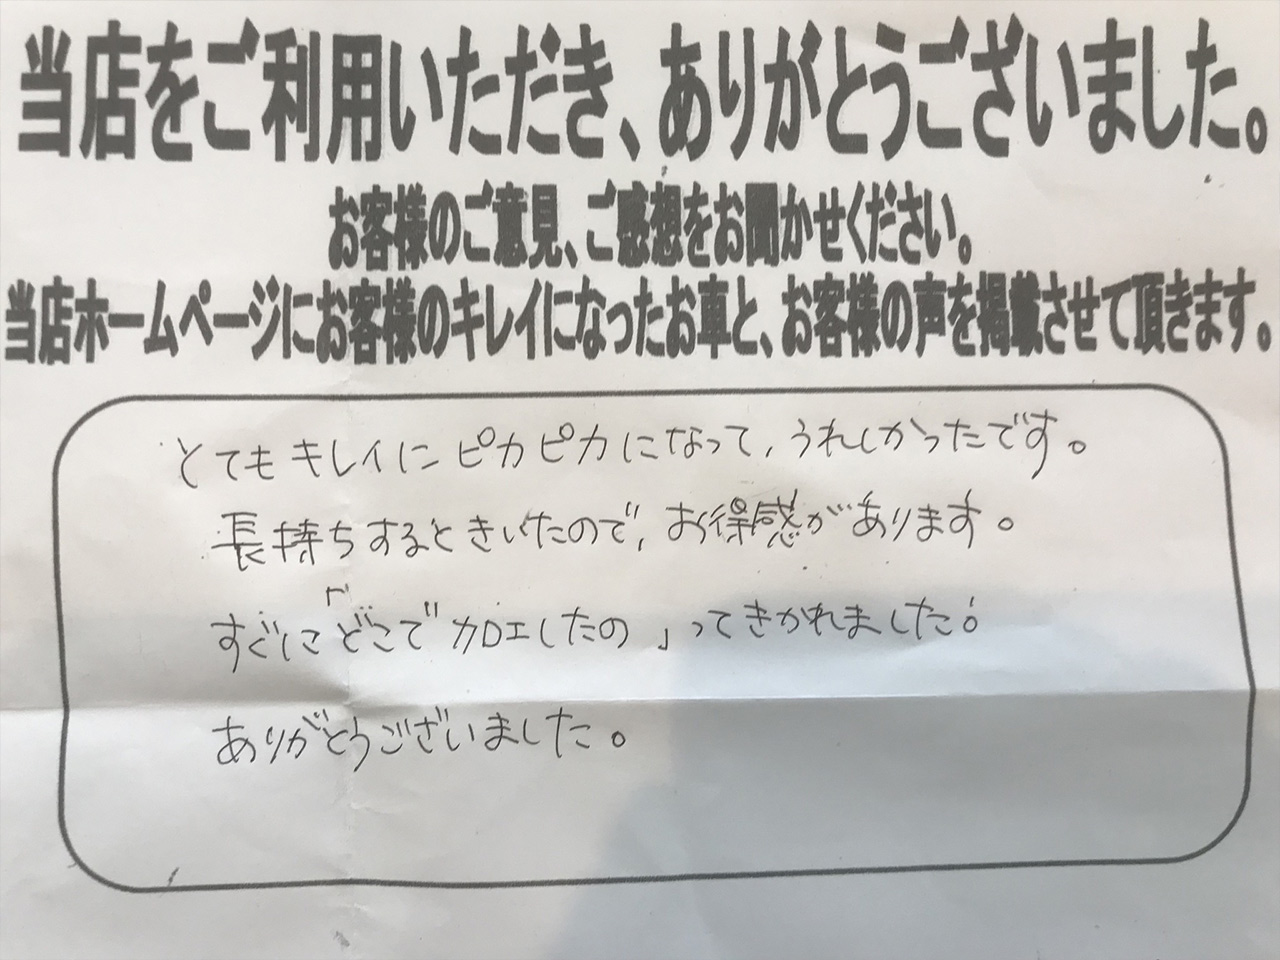 当店をご利用いただき、ありがとうございました。
お客様のご意見、ご感想をお聞かせください。
当店ホームページにお客様のキレイになったお車と、お客様の声を掲載させて頂きます。
とてもキレイにピカピカになって、うれしかったです。
長持ちするときいたので、お得感があります。
すぐに「どこで加工したの」ってきかれました！
ありがとうございました。